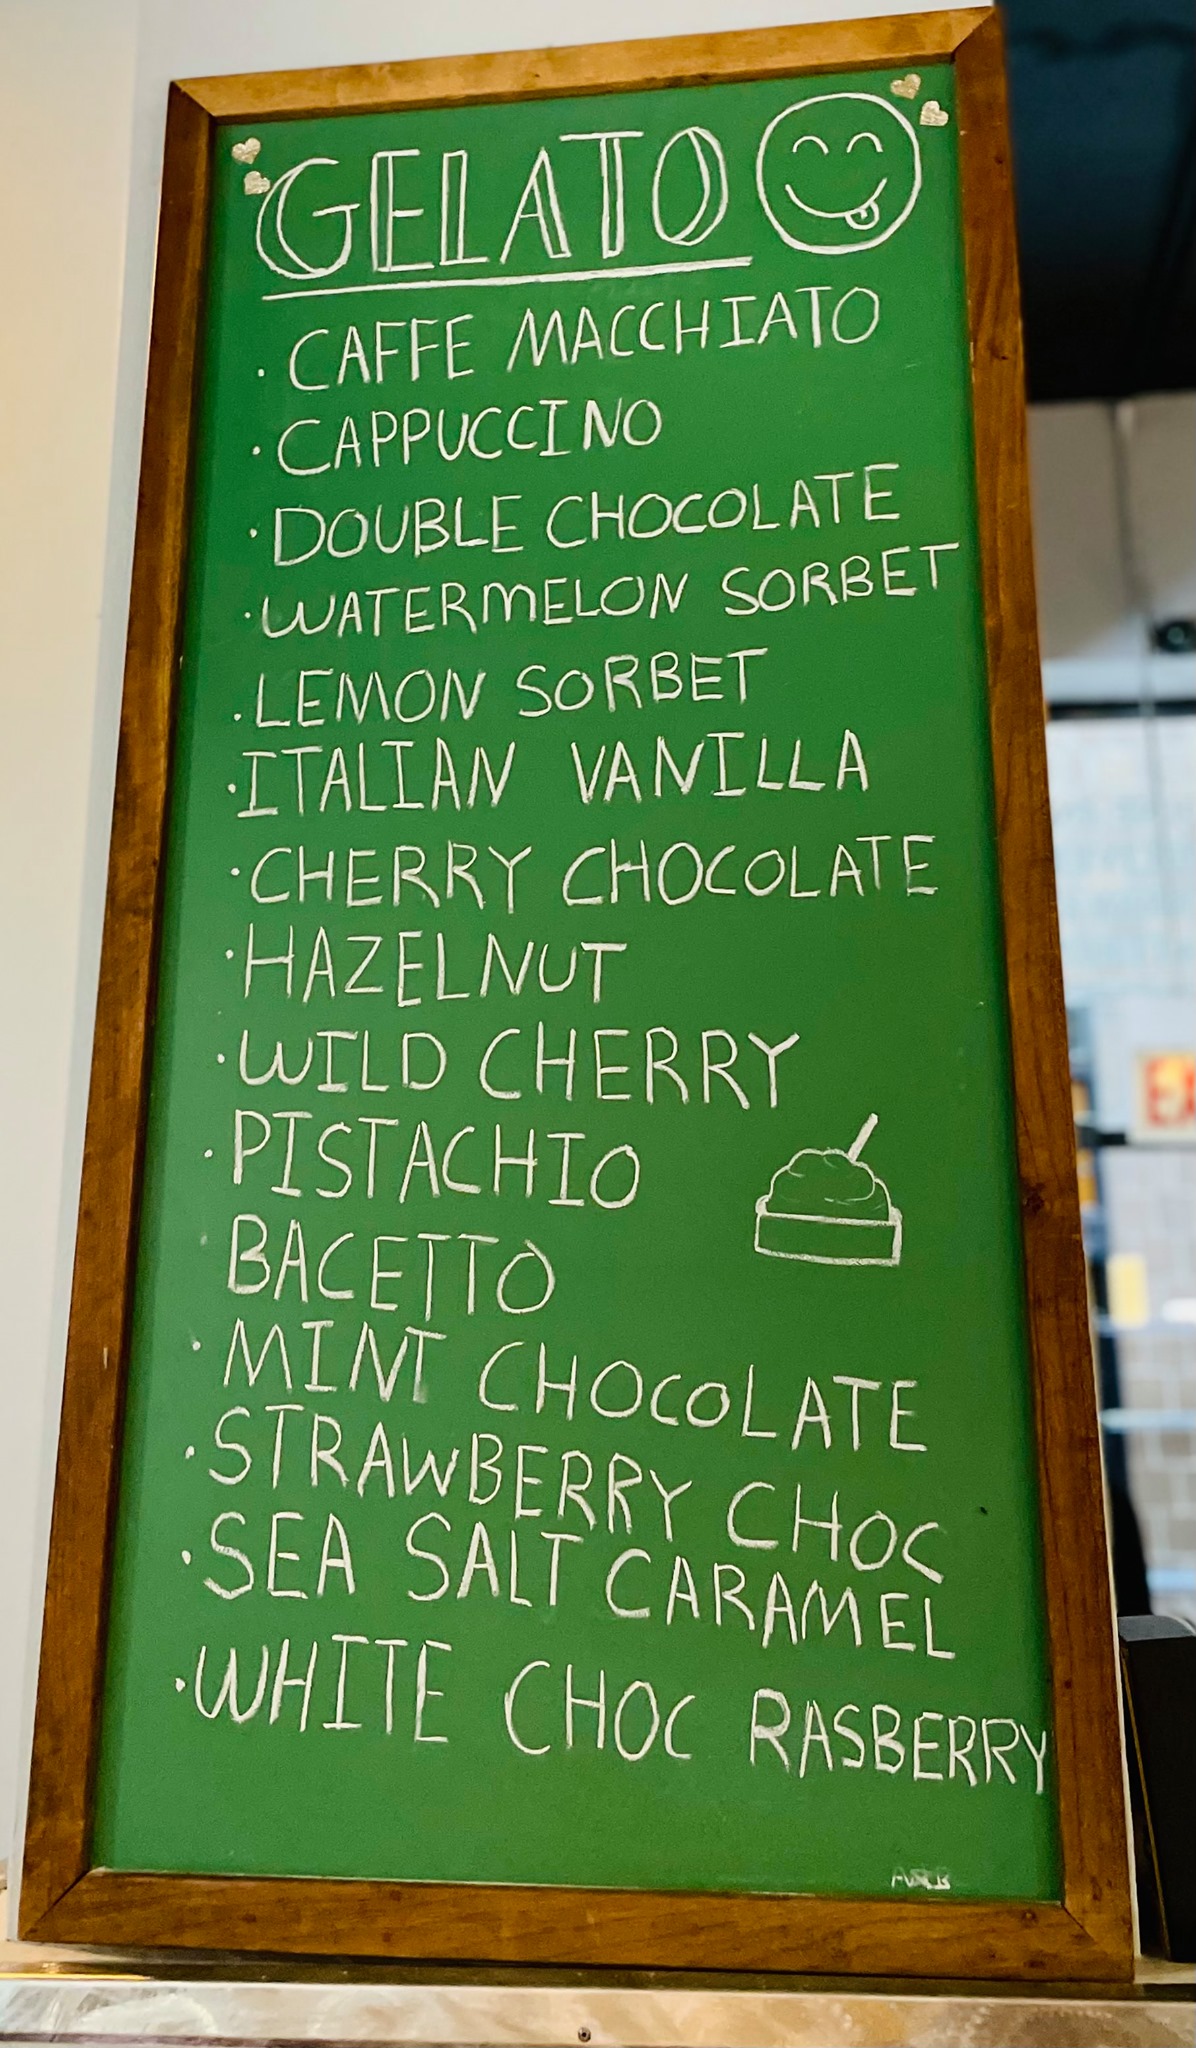 GELATO
· CAFFE MACCHIATO
· CAPPUCCINO
· DOUBLE CHOCOLATE
· WATERMELON SORBET
· LEMON SORBET
· ITALIAN VANILLA
· CHERRY CHOCOLATE
· HAZELNUT
· WILD CHERRY
· PISTACHIO
· BACETTO
· MINT CHOCOLATE
· STRAWBERRY CHOC
· SEA SALT CARAMEL
· WHITE CHOC RASBERRY